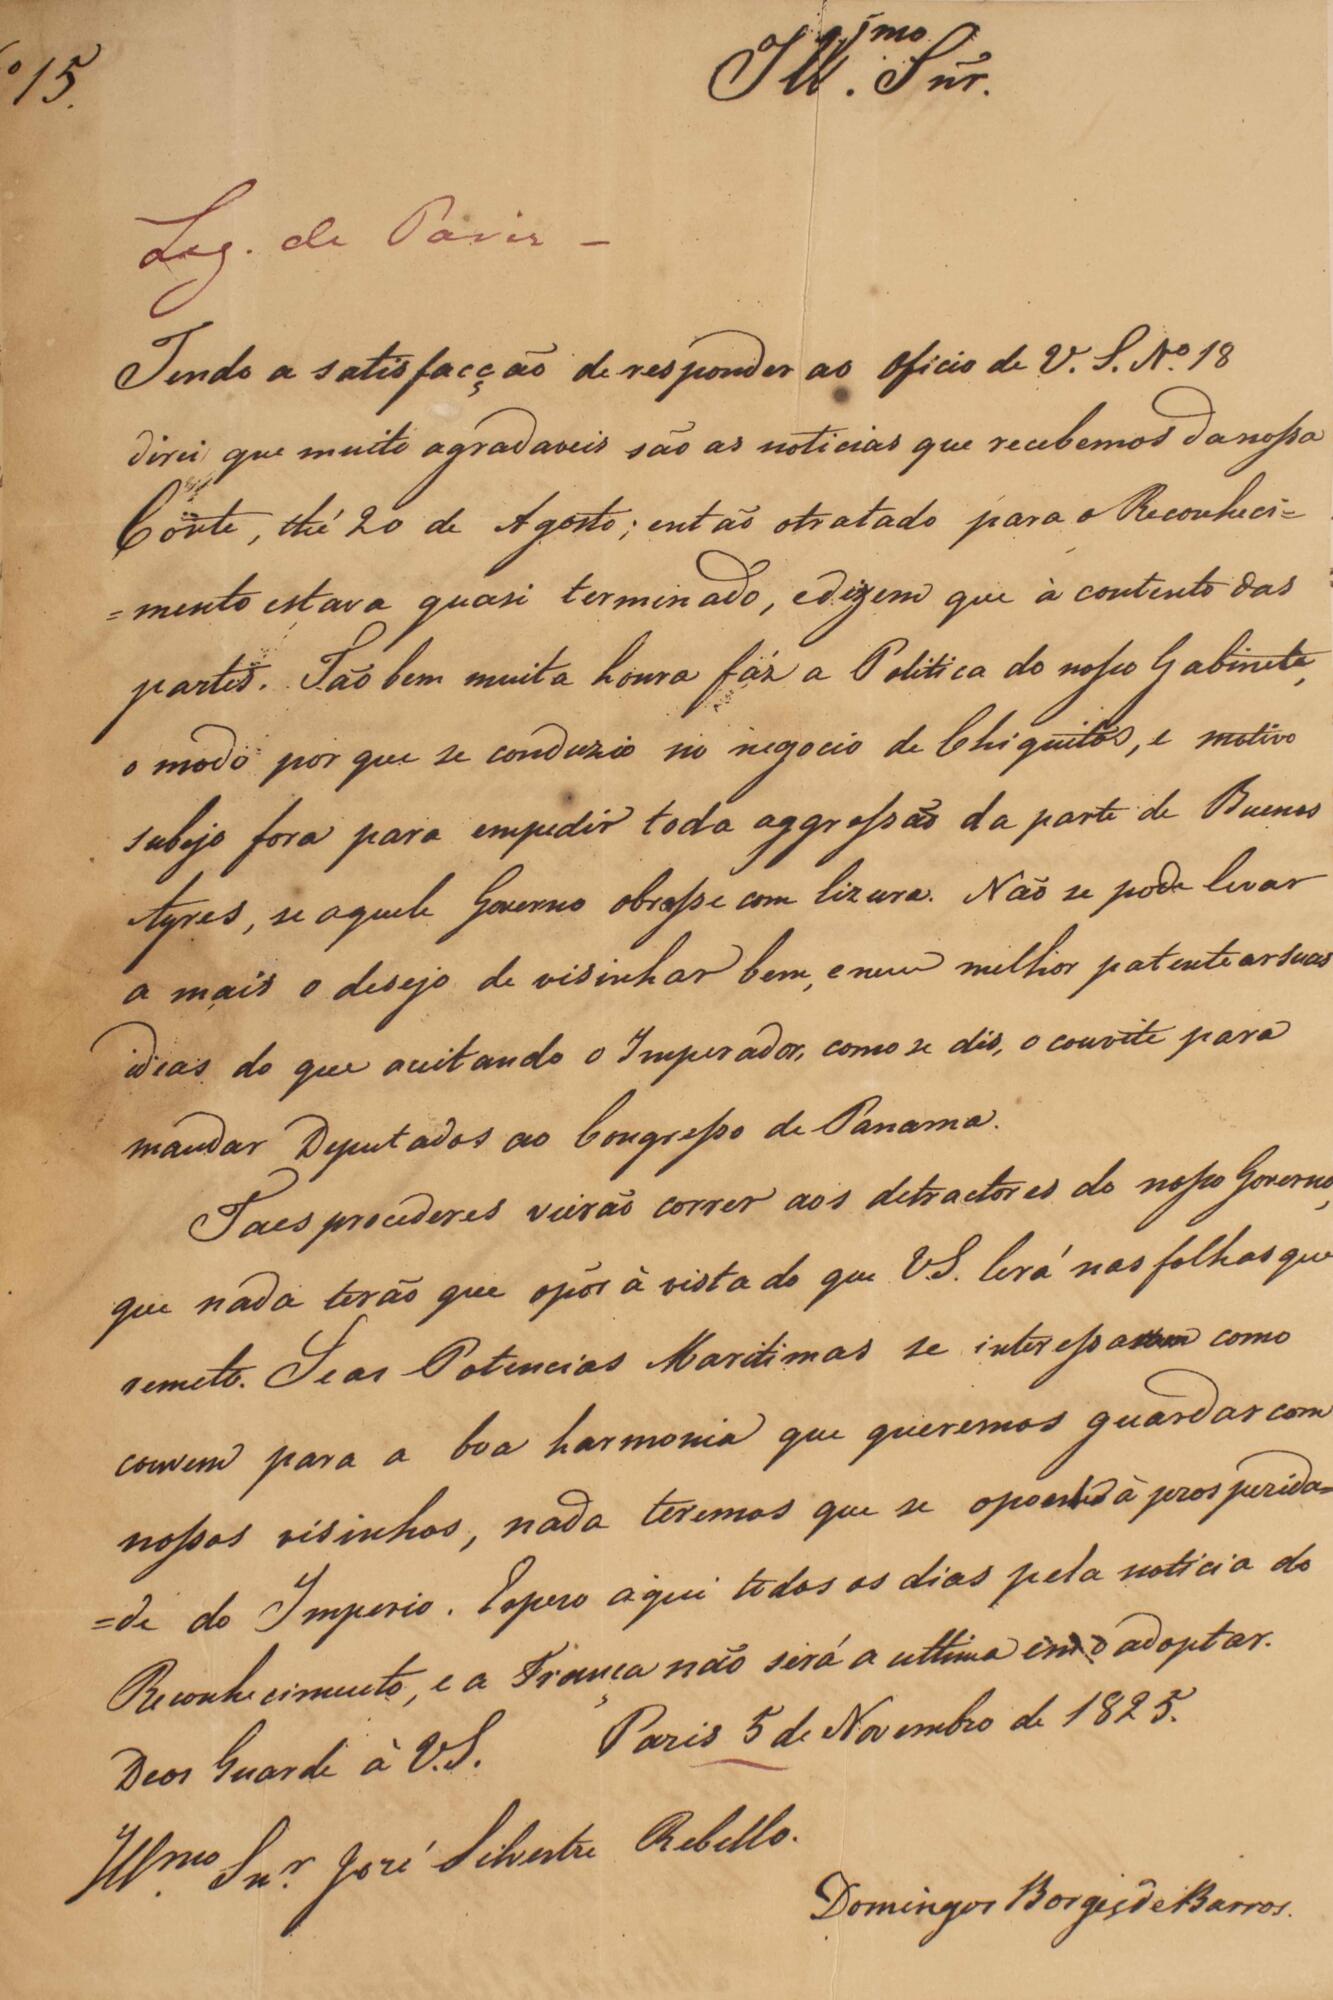 Nº 15.
Ill.ᵐᵒ Snr.
Leg. de Paris -
Tendo a satisfacção de responder ao Oficio de V. S. Nº. 18
direi que muito agradaveis são as noticias que recebemos da nossa
Corte, thé 20 de Agosto; então o tratado para o Reconheci=
=mento estava quasi terminado, e dizem que à contento das
partes. Tão bem muita honra fáz a Politica do nosso Gabinete,
o modo por que se conduzio no negocio de Chiquitos, e motivo
subejo fora para empedir toda aggressão da parte de Buenos
Ayres, se aquele Governo obrasse com lizura. Não se pode levar
a mais o desejo de visinhar bem, e nem melhor patentear suas
ideas do que aceitando o Imperador, como se dis, o convite para
mandar Deputados ao Congresso de Panama.
Taes procederes veirão correr aos detractores do nosso Governo,
que nada terão que opôr à vista do que V.S. lerá nas folhas que
remeto. Se as Potencias Maritimas se interessarem como
convem para a boa harmonia que queremos guardar com
nossos visinhos, nada teremos que se oponha à prosperida=
=de do Imperio. Espero aqui todos os dias pela noticia do
Reconhecimento, e a França não será a ultima em o adoptar.
Deos Guarde à V.S. Paris 5 de Novembro de 1825.
Ill.ᵐᵒ Snʳ. José Silvestre Rebello.
Domingos Borges de Barros.